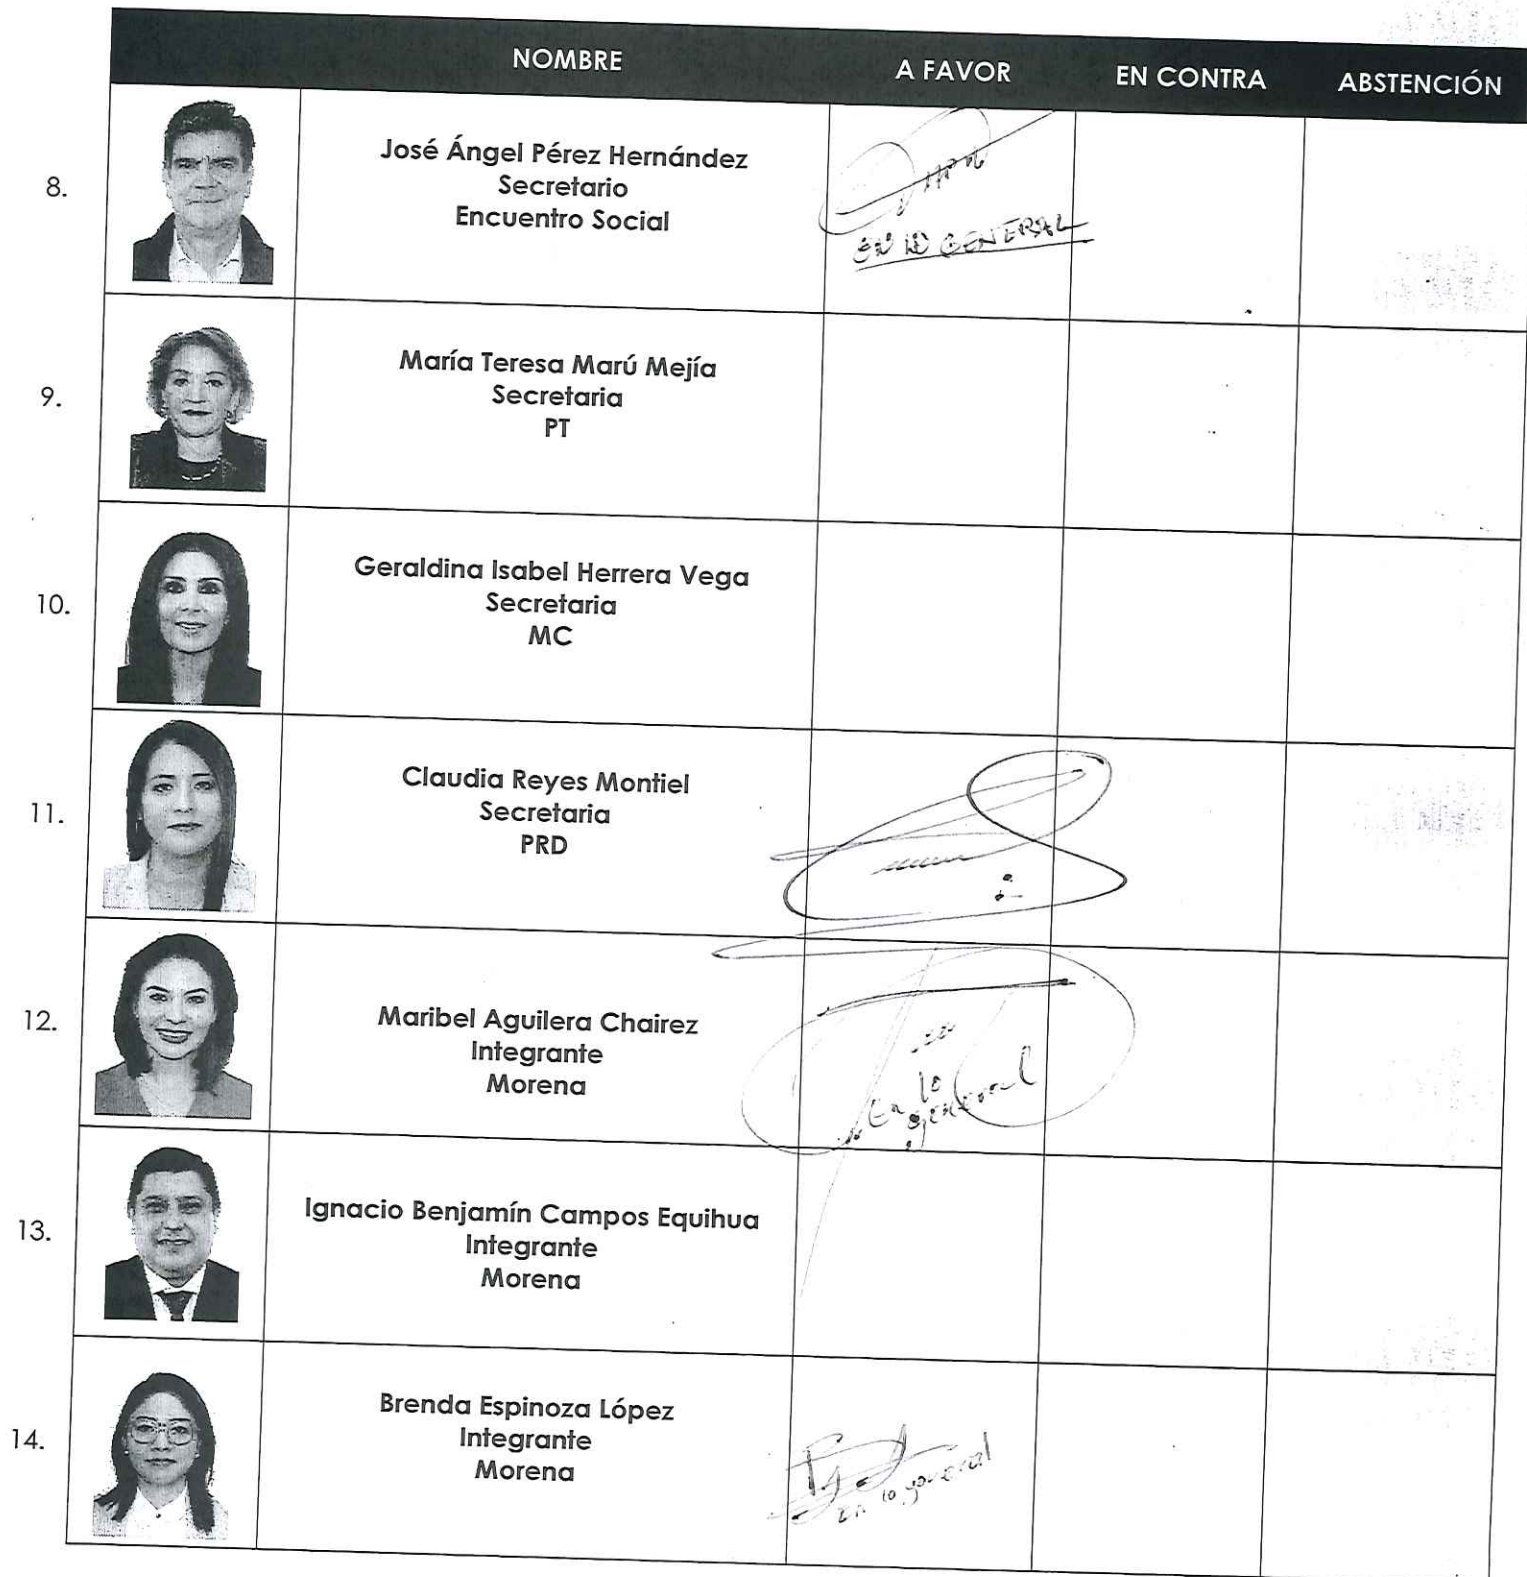 NOMBRE A FAVOR EN CONTRA ABSTENCIÓN
8.
José Ángel Pérez Hernández
Secretario
Encuentro Social
EN LO GENERAL
9.
María Teresa Marú Mejía
Secretaria
PT
10.
Geraldina Isabel Herrera Vega
Secretaria
MC
11.
Claudia Reyes Montiel
Secretaria
PRD
12.
Maribel Aguilera Chairez
Integrante
Morena
En lo
general
13.
Ignacio Benjamín Campos Equihua
Integrante
Morena
14.
Brenda Espinoza López
Integrante
Morena
En lo general